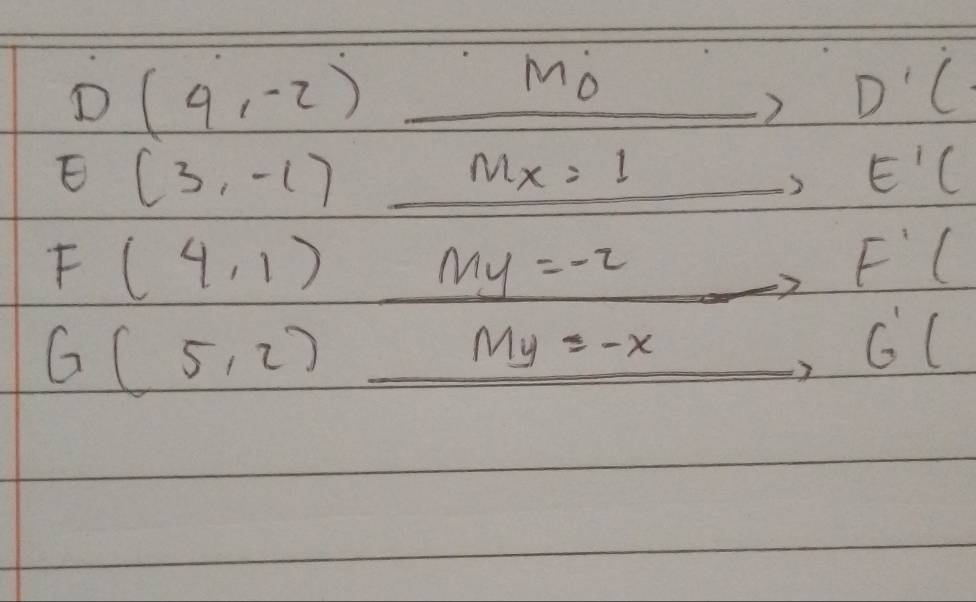 D ( 4, -2 ) M0 D' (
E ( 3, -1 ) Mx = 1 E' (
F ( 4, 1 ) My = -2 F' (
G ( 5, 2 ) My = -x G' (